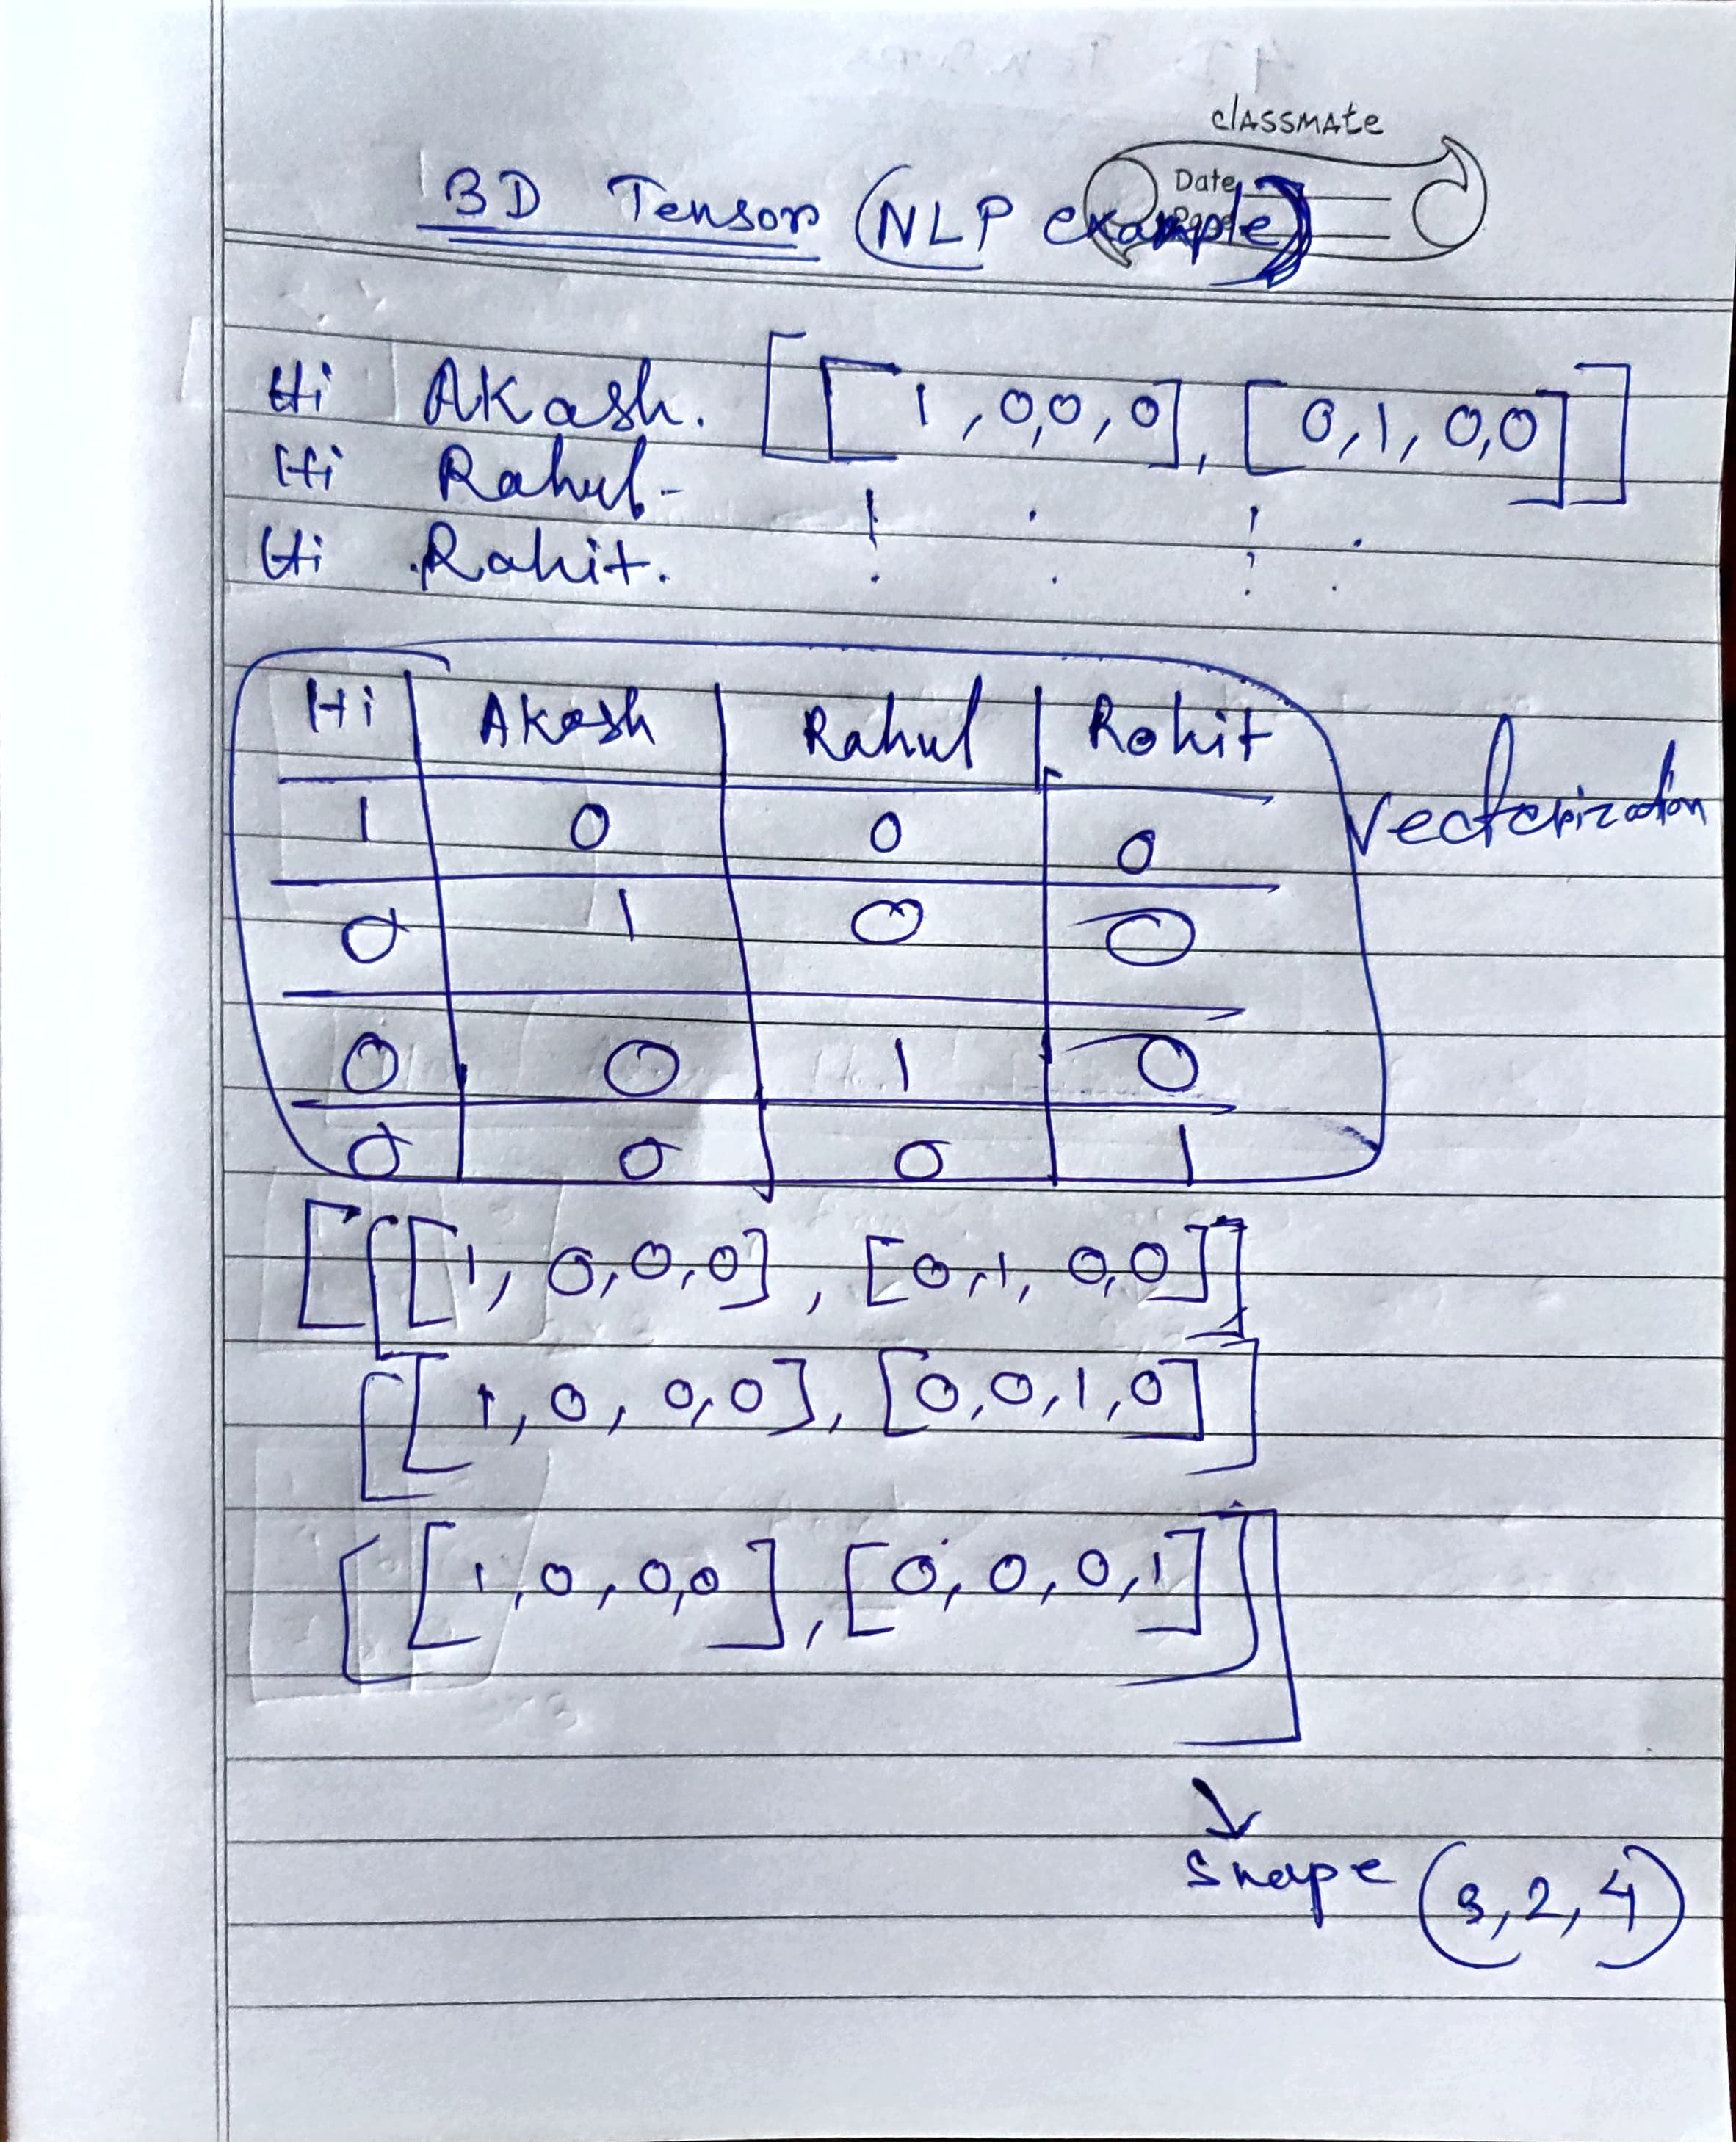 classmate
Date
Page
3D Tensor (NLP example)
Hi Akash. [[1,0,0,0], [0,1,0,0]]
Hi Rahul.
Hi Rohit.
Hi | Akash | Rahul | Rohit
1 | 0 | 0 | 0
vectorization
0 | 1 | 0 | 0
0 | 0 | 1 | 0
0 | 0 | 0 | 1
[[[1, 0,0,0], [0,1, 0,0]]
[[1,0, 0,0], [0,0,1,0]]
[[1,0,0,0], [0,0,0,1]]]
↓
Shape (3,2,4)